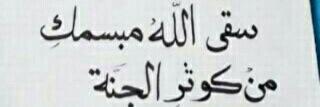 سقى اللّٰهُ مبسمكِ
منْ كوثرِ الجنَّة